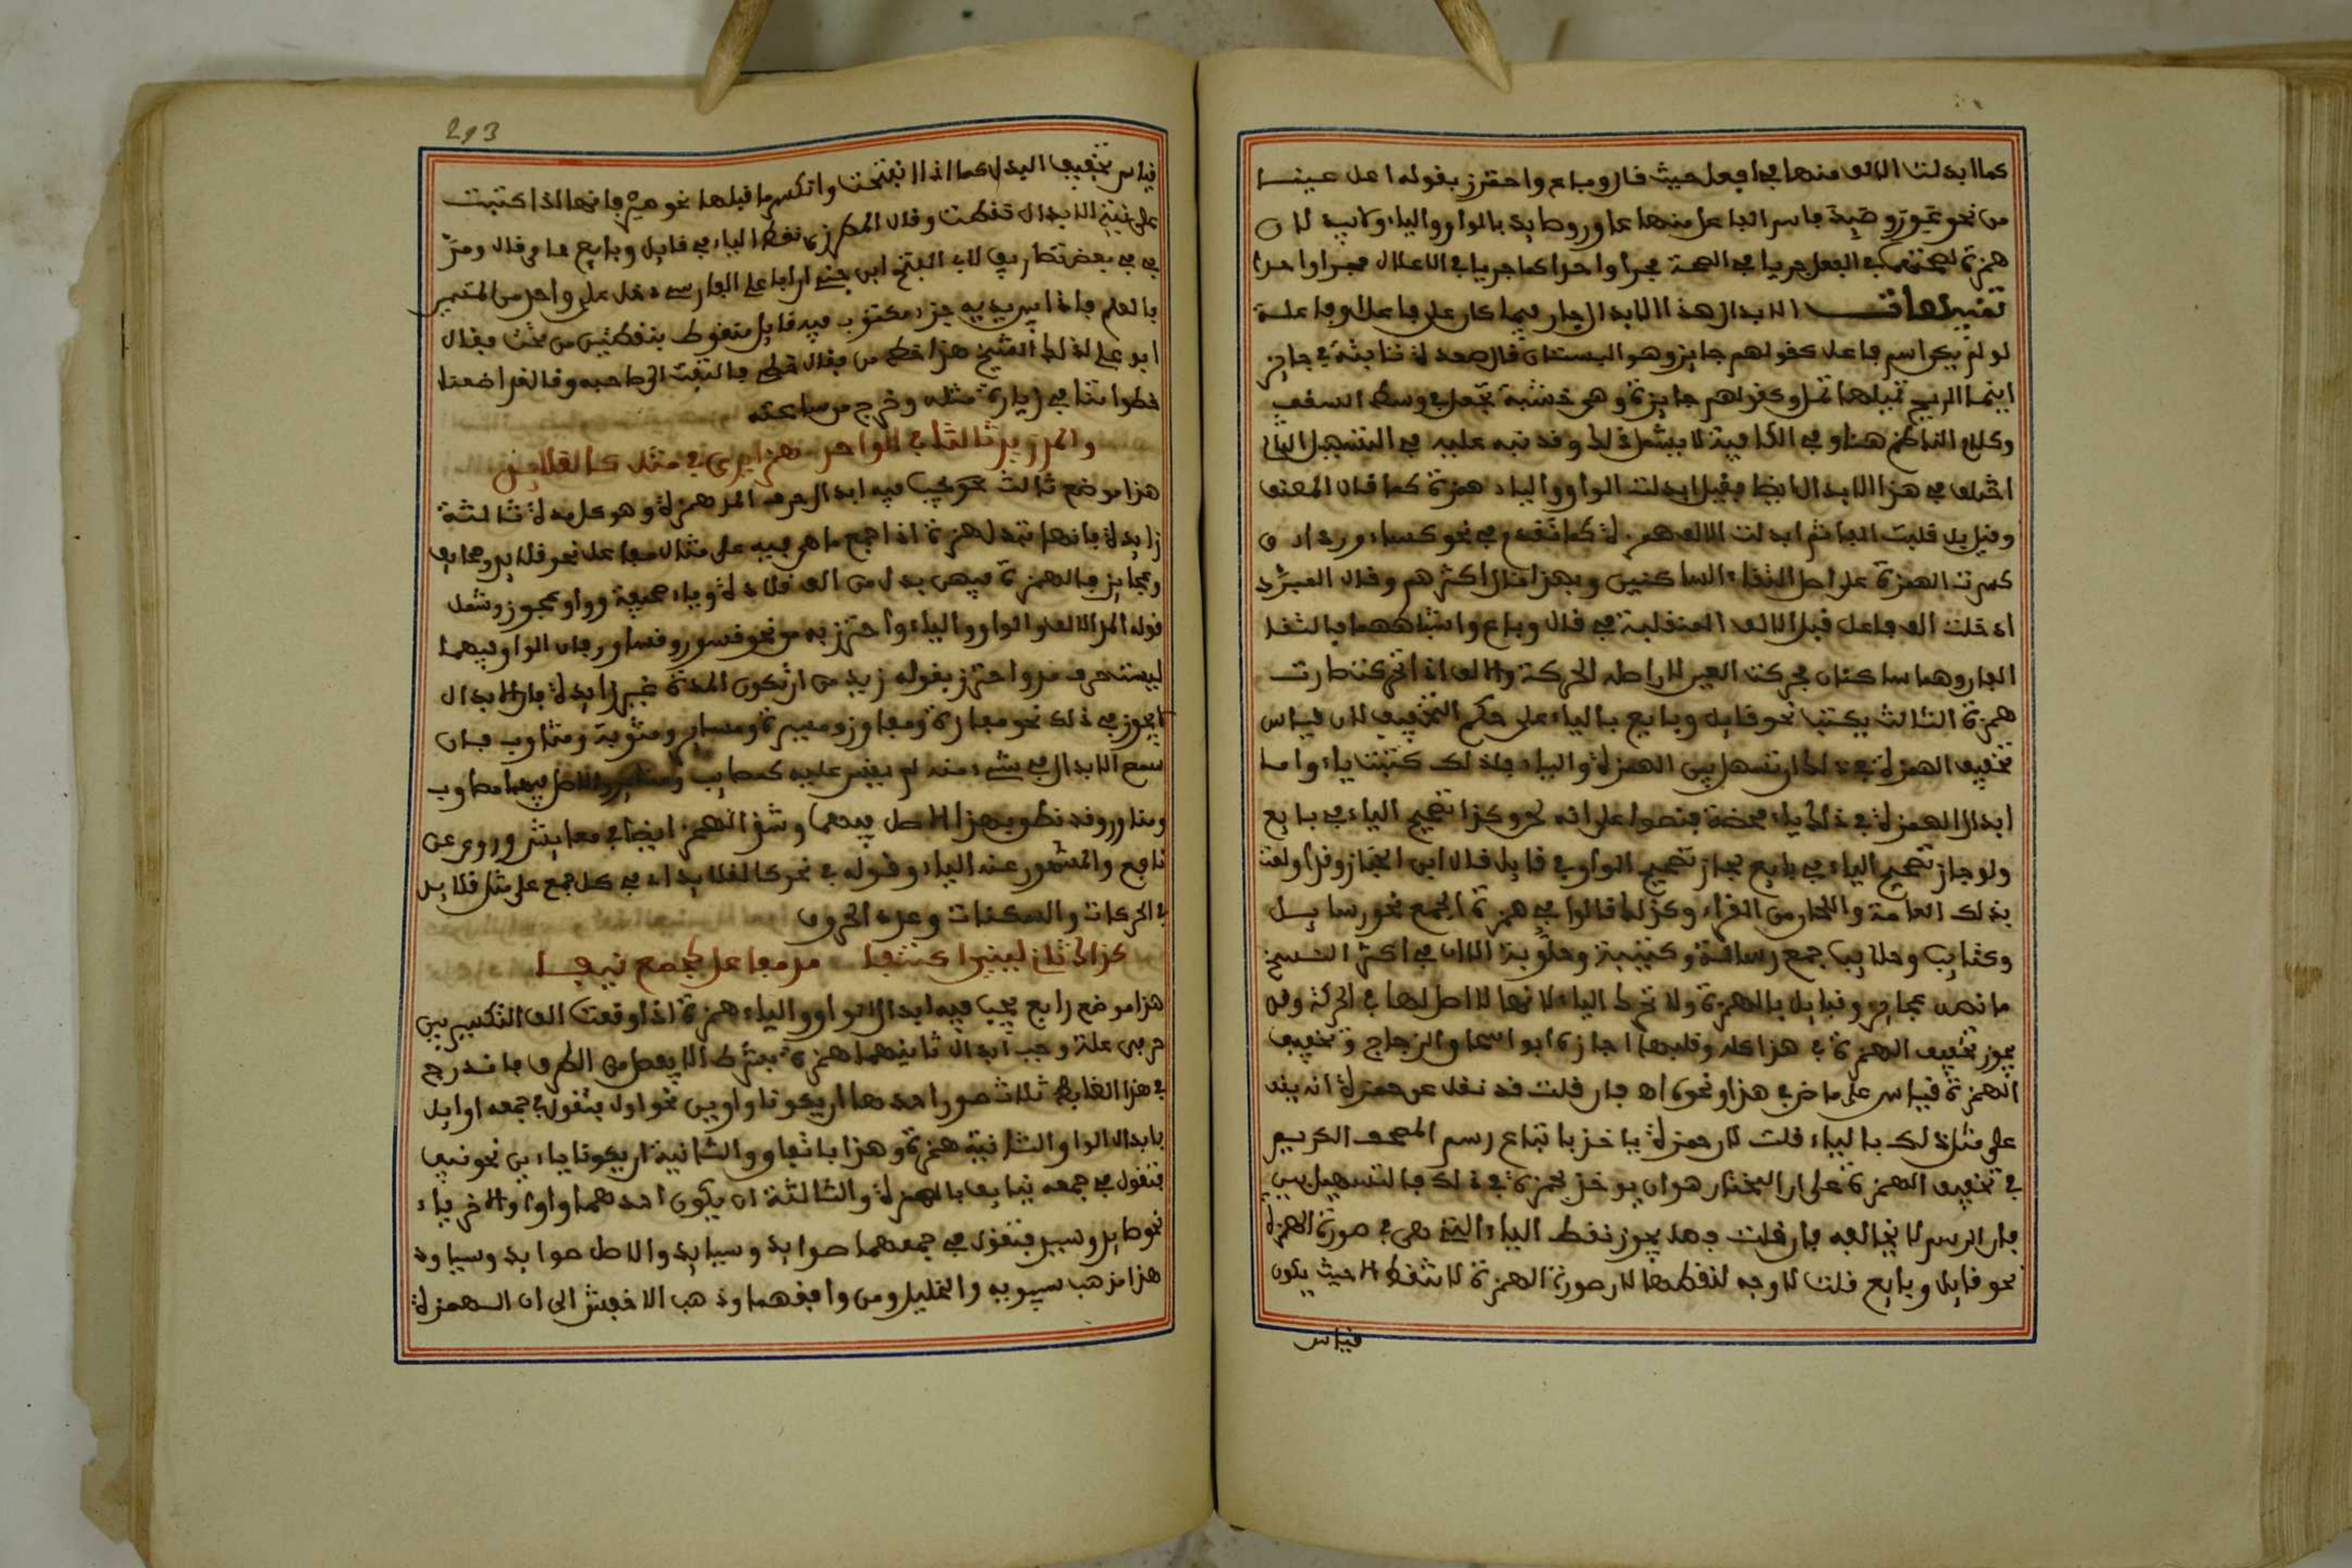 كما ابدلت الالف منها في افعل حيث قال وباع واحترز بقوله اعل عينا
من نحو عور وصيد فاسم الفاعل منهما عاور وصايد بالواو والياء لان
همزة في الفعل جريا في الصحة مجرا واحدا كما جريا في الاعلال مجرا واحدا
تنبيهات الابدال هذا الابدال جار فيما كان على فاعل او فاعلة
لو لم يكن اسم فاعل كقولهم جايز وهو البستان قال صعدة نابتة في جايز
اينما الريح تميلها تمل وكقولهم جايزة وهي خشبة تجعل في وسط السقف
وكلام الناظم هنا وفي الكافية لا يشمل ذلك وقد نبه عليه في التسهيل الثاني
اختلف في هذا الابدال ايضا فقيل ابدلت الواو والياء همزة كما قال المصنف
وقيل بل قلبت الفا ثم ابدلت الالف همزة كما تقدم في نحو كساء ورداء و
كسرت الهمزة على اصل التقاء الساكنين وبهذا قال اكثرهم وقال المبرد
ادخلت الف فاعل قبل الالف المنقلبة في قال وباع واشباههما فالتقا
الفان وهما ساكنان فحركت العين لان اصلها الحركة والالف اذا تحركت صارت
همزة الثالث يكتب نحو قايل وبايع بالياء على حكم التخفيف لان قياس
تخفيف الهمزة في ذلك ان تسهل بين الهمزة والياء فلذلك كتبت ياء واما
ابدال الهمزة في ذلك ياء محضة فنصوا على انه لحن وكذا تصحيح الياء في بايع
ولو جاز تصحيح الياء في بايع لجاز تصحيح الواو في قايل قال ابن الخباز وقد اولعت
بذلك العامة والتجار من القراء وكذلك قالوا في همزة الجمع نحو رسايل
وكتايب وحلايب جمع رسالة وكتيبة وحلوبة الا ان في اكثر النسخ
ما نصه عجايز وقبايل بالهمزة ولا تخط الياء لانها لا اصل لها في الحركة وقد
يجوز تخفيف الهمزة في هذا كله وقلبها اجازه ابو اسحاق الزجاج وتخفيف
الهمزة قياس على ما في هذا ونحوه اه فان قلت قد نقل عن حمزة انه يقف
على مثل ذلك بالياء قلت لان حمزة ياخذ باتباع رسم المصحف الكريم
في تخفيف الهمزة على ان المختار هو ان يوخذ لحمزة في ذلك بالتسهيل بين بين
فان الرسم لا يخالفه فان قلت فهل يجوز نقط الياء التي هي في صورة الهمزة
نحو قايل وبايع قلت لا وجه لنقطها لان صورة الهمزة لا تنقط الا حيث يكون
قياس
293
قياس تخفيفها البدل كما اذا انفتحت وانكسر ما قبلها نحو مير فانها اذا كتبت
على نية الابدال نقطت وقال المطرزي نقط الياء في قايل وبايع عامي قال ومر
بي في بعض تصاريف لابي الفتح ابن جني ان ابا علي الفارسي دخل على واحد من المتسمين
بالعلم فاذا بين يديه جزء مكتوب فيه قايل منقوط بنقطتين من تحت فقال
ابو علي لذلك الشيخ هذا خط من فقال خطي فالتفت الى صاحبه وقال قد اضعنا
خطواتنا في زيارة مثله وخرج من ساعته
والمد زيد ثالثا في الواحد همزا يرى في مثل كالقلايد
هذا موضع ثالث يجب فيه ابدال حرف المد همزة وهو كل مدة ثالثة
زايدة فانها تبدل همزة اذا جمع ما هي فيه على مثال مفاعل نحو قلايد وصحايف
وعجايز فالهمزة فيهن بدل من الف قلادة وياء صحيفة وواو عجوز وشمل
قوله المد الالف والواو والياء واحترز به من نحو قسور وقساور فان الواو فيهما
ليست حرف مد واحترز بقوله زيد من ان تكون المدة غير زايدة فان الابدال
لا يجوز في ذلك نحو مفازة ومفاوز ومسيرة ومساير ومثوبة ومثاوب فان
سمع الابدال في شيء منه لم يقس عليه كمصايب ومناير والاصل فيهما مصاوب
ومناور وقد نطق بهذا الاصل فيهما وشذ الهمز ايضا في معايش وروي عن
نافع والمشهور عنه الياء وقوله في نحو كالقلايد اي في كل جمع على مثل قلايد
في الحركات والسكنات وعدد الحروف
كذاك ثاني لينين اكتنفا مد مفاعل كجمع نيفا
هذا موضع رابع يجب فيه ابدال الواو والياء همزة اذا وقعت الف التكسير بين
حرفي علة وجب ابدال ثانيهما همزة بشرط الا يفصل من الطرف فاندرج
في هذا الضابط ثلاث صور احدها ان يكونا واوين نحو اول فتقول في جمعه اوايل
بابدال الواو الثانية همزة وهذا باتفاق والثانية ان يكونا ياءين نحو نيف
فتقول في جمعه نيايف بالهمزة والثالثة ان يكون احدهما واوا والاخر ياء
نحو صايد وسيد فتقول في جمعهما صوايد وسيايد والاصل صوايد وسياود
هذا مذهب سيبويه والخليل ومن وافقهما وذهب الاخفش الى ان الهمزة